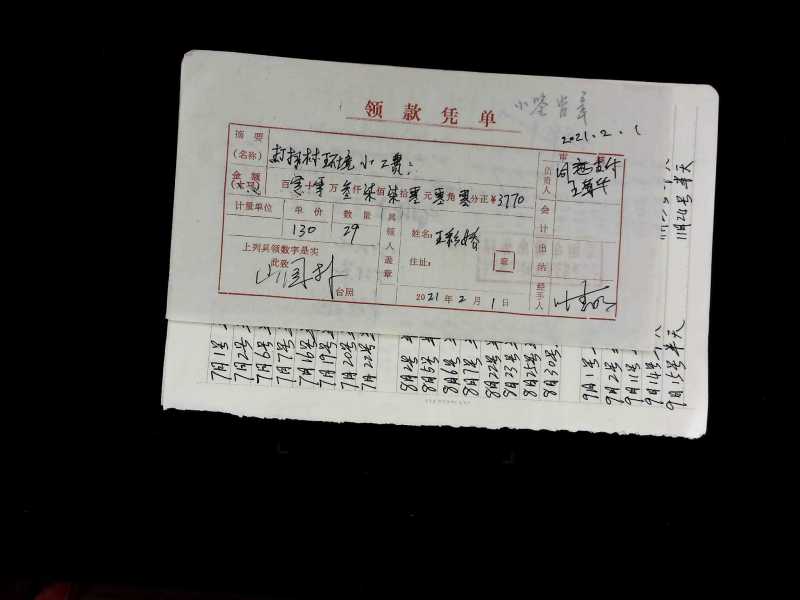 领款凭单
2021.2.1
摘要
(名称)
打扫村环境小工费:
金额
(大写)
百零十零万叁仟柒佰柒拾零元零角零分正¥3770
计量单位 单价 数量
130 29
上列具领数字是实
此致
台照
具领人盖章
姓名:
住址:
章
2021年2月1日
审
负责人
同意支付
会计
出纳
经手人
7月1号
7月2号
7月6号
7月7号
7月16号
7月19号
7月20号
7月22号
8月2号
8月5号
8月6号
8月7号
8月22号
8月23号
8月25号
8月30号
9月1号
9月2号
9月11号
9月14号
9月15号半天
11月24号半天